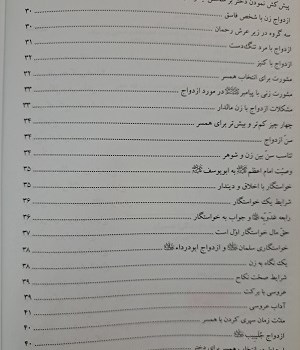 پیش کش نمودن دختر بر
ازدواج زن با شخص فاسق ۳۰
سه گروه در زیر عرش رحمان ۳۰
ازدواج با مرد تنگدست ۳۱
ازدواج با کنیز ۳۲
مشورت برای انتخاب همسر ۳۲
مشورت زنی با پیامبر ﷺ در مورد ازدواج ۳۲
مشکلات ازدواج با زن مالدار ۳۳
چهار چیز کم‌تر و بیش‌تر برای همسر ۳۳
سنّ ازدواج ۳۴
تناسب سنّ بین زن و شوهر ۳۴
وصیّت امام اعظم به ابویوسف ۳۵
خواستگار با اخلاق و دیندار ۳۵
شرایط یک خواستگار ۳۶
رابعه عَدَوِیّه و جواب به خواستگار ۳۶
حقّ مال خواستگار اوّل است ۳۷
خواستگاری سلمان و ازدواج ابودرداء ۳۸
یک نگاه به زن ۳۸
شرایط صحت نکاح ۳۹
عروسی با برکت ۴۱
آداب عروسی ۳۹
مدّت زمان سپری کردن با همسر ۴۰
ازدواج جُلَیبیب ۴۰
همسر برای دختر ۴۰